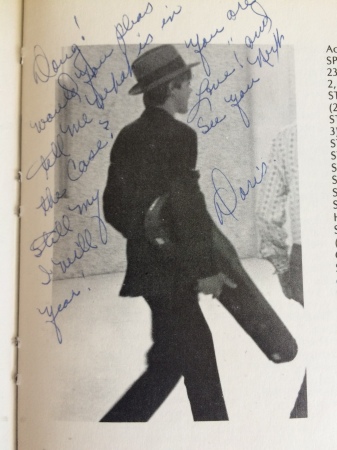 Doug!
would you pleas
tell me what is in
the case? You are
Still my Love! and
I will See you Next
year! Doris.
SP
23
2,
ST
(2
ST
3)